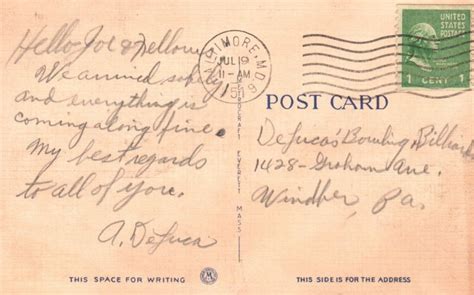 Hello Joe & Fellows
We arrived safely
and everything is
coming along fine.
My best regards
to all of you.
A. DeLuca
THIS SPACE FOR WRITING
BALTIMORE, MD.
JUL 19
11 - AM
UNITED STATES
POSTAGE
1 CENT 1
POST CARD
DeLuca's Bowling, Billiards
1428 - Graham Ave.
Windber, Pa.
THIS SIDE IS FOR THE ADDRESS
EVERETT MASS
M